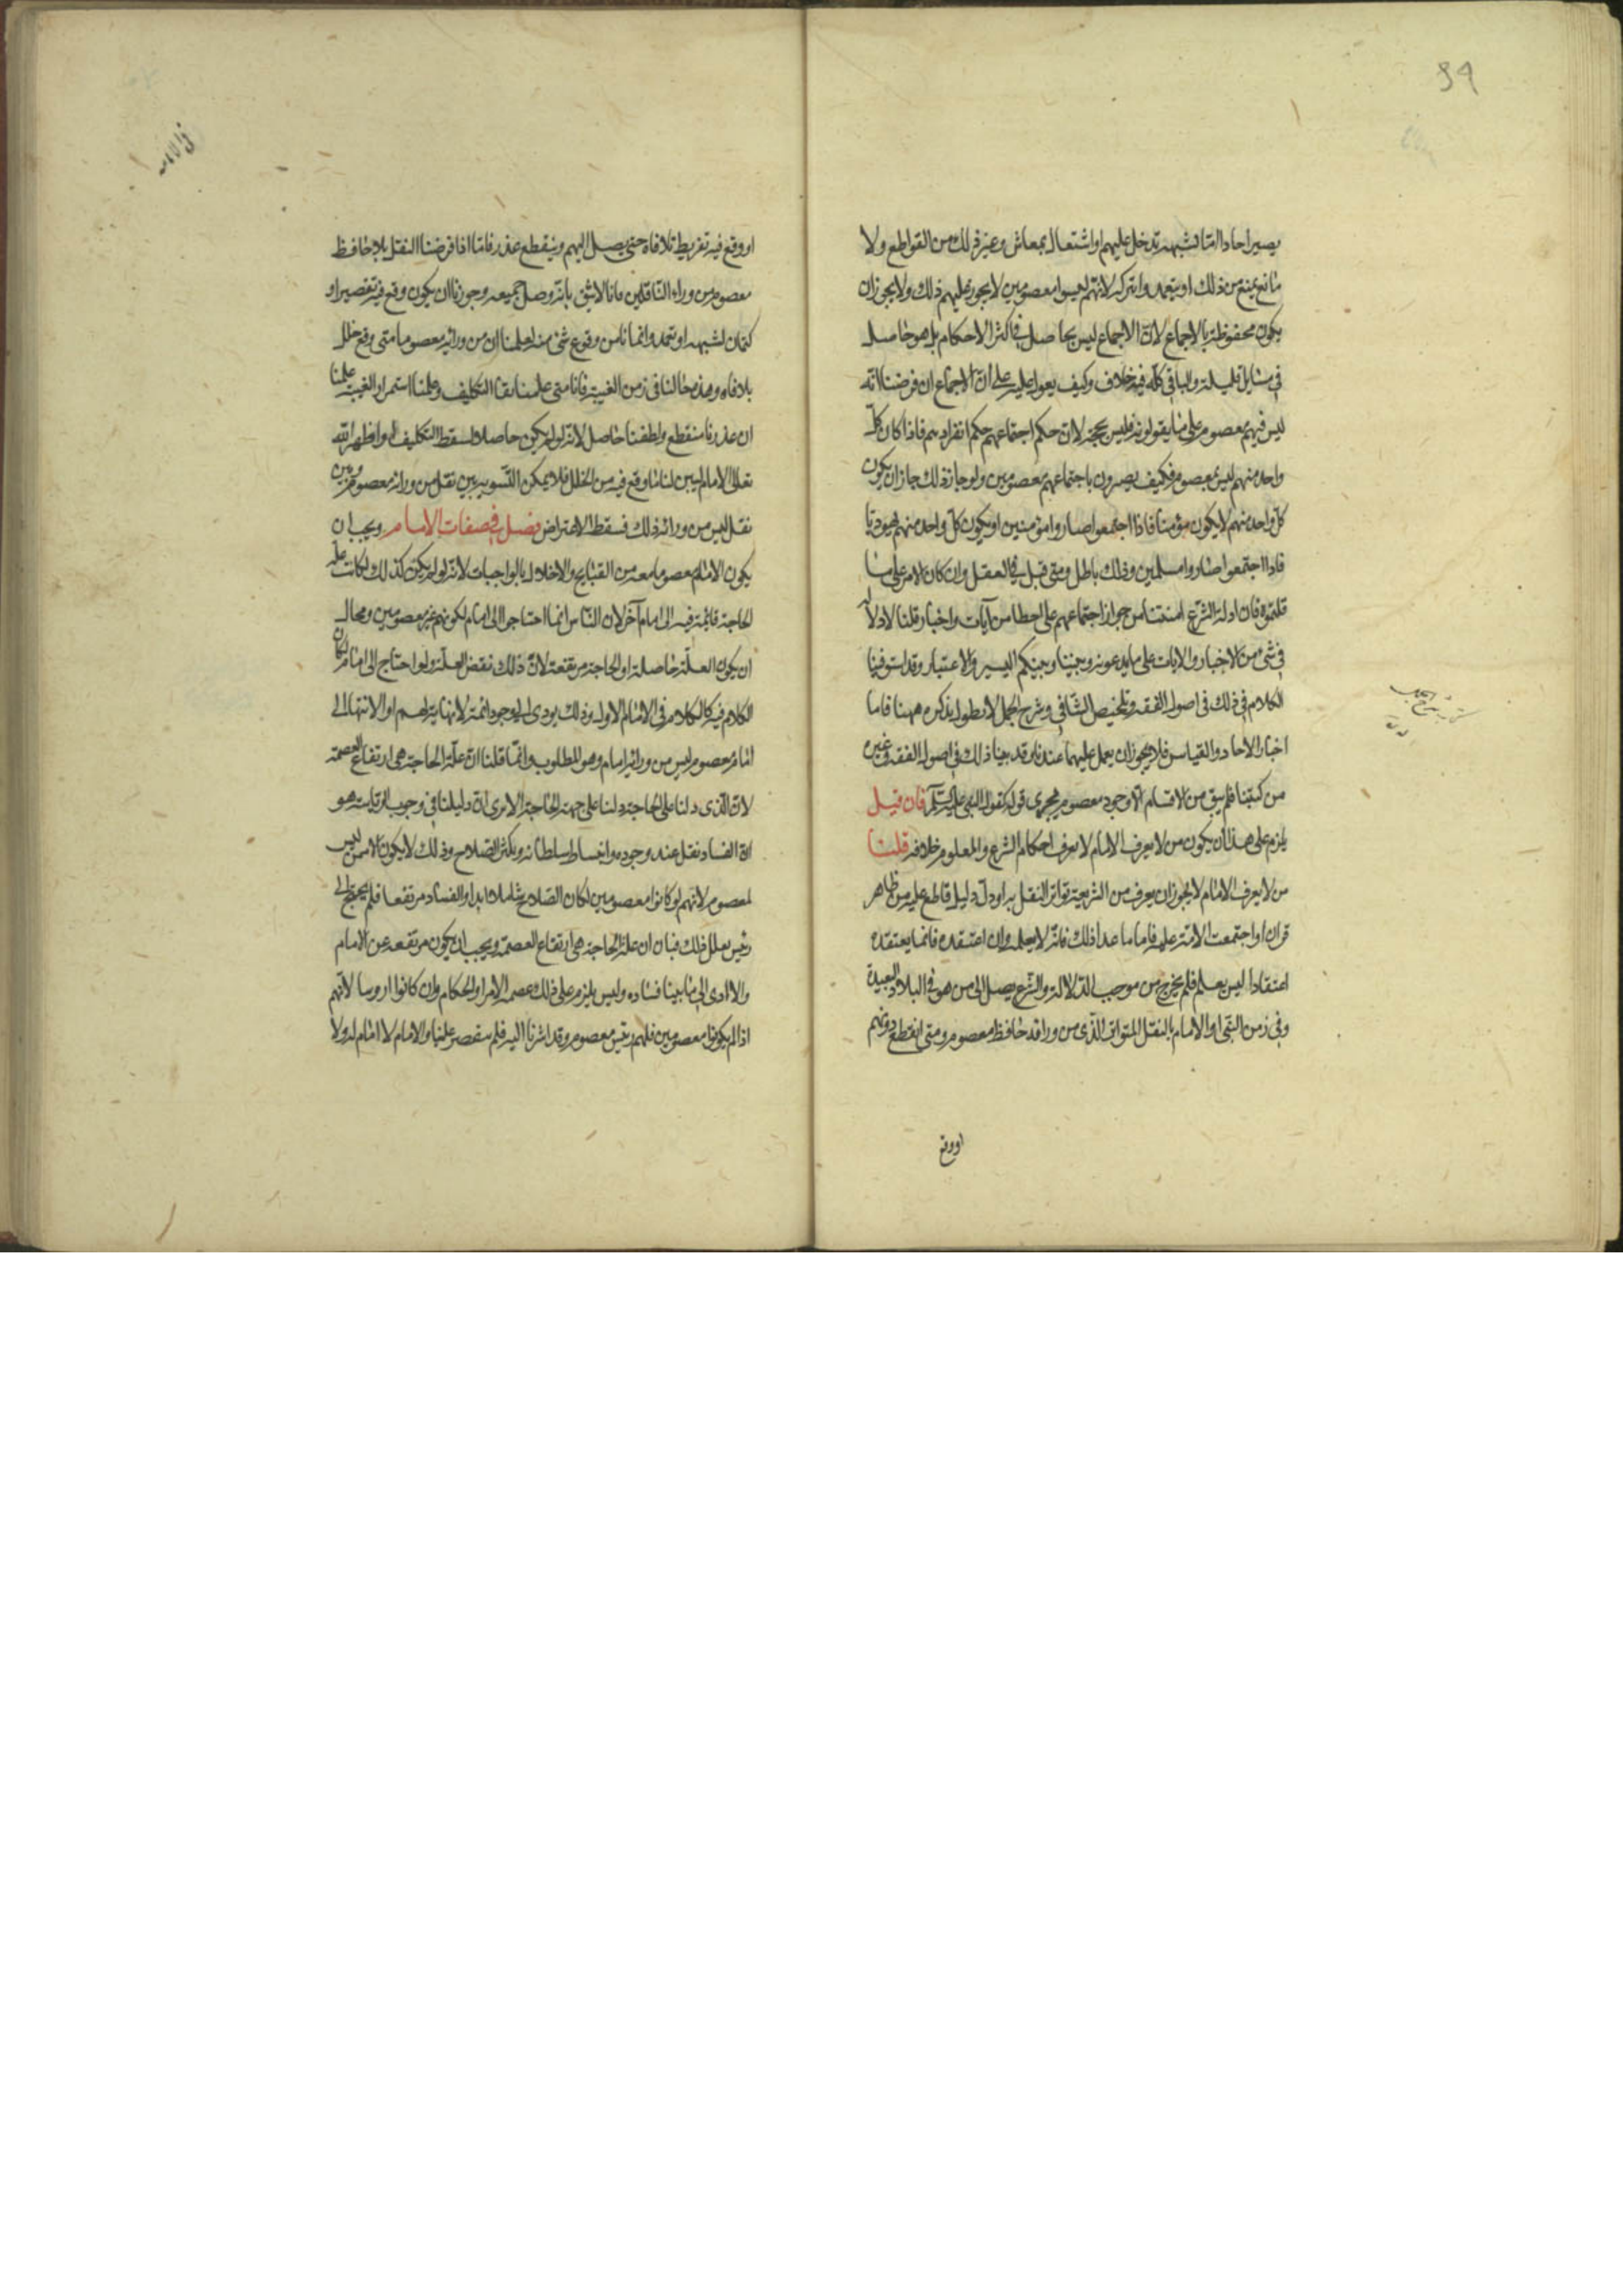 يصير احادا اما لشبهة تدخل عليهم او اشتغال بمعاش وغير ذلك من القواطع ولا
مانع يمنع من ذلك او يتعمدوا تركه لانهم ليسوا معصومين لا يجوز عليهم ذلك ولا يجوز ان
يكون محفوظة بالاجماع لان الاجماع ليس بحاصل في اكثر الاحكام بل هو حاصل
في مسايل قليلة والباقي كله فيه خلاف وكيف يعول عليه على ان الاجماع ان فرضنا انه
ليس فيهم معصوم على ما يقولونه فليس بحجة لان حكم اجتماعهم حكم انفرادهم فاذا كان كل
واحد منهم ليس بمعصوم فكيف يصيرون باجتماعهم معصومين ولو جاز ذلك جاز ان يكون
كل واحد منهم لا يكون مؤمنا فاذا اجتمعوا صاروا مؤمنين او يكون كل واحد منهم يهوديا
فاذا اجتمعوا صاروا مسلمين وذلك باطل ومتى قيل في العقل وان كان الامر على ما
قلتموه فان ادلة الشرع امنتنا من جواز اجتماعهم على الخطا من آيات واخبار قلنا لا دلالة
في شيء من الاخبار والايات على ما يدعونه وبيننا وبينكم السير والاعتبار وقد استوفينا
الكلام في ذلك في اصول الفقه وتلخيص الشافي وشرح الجمل لا نطول بذكره ههنا فاما
اخبار الاحاد والقياس فلا يجوز ان يعمل عليهما عندنا وقد بينا ذلك في اصول الفقه وغيره
من كتبنا فلم يبق من الاقسام الا وجود معصوم يجري قوله كقول النبي عليه السلم فان قيل
يلزم على هذا ان يكون من لا يعرف الامام لا يعرف احكام الشرع والمعلوم خلافه قلنا
من لا يعرف الامام لا يجوز ان يعرف من الشريعة تواتر النقل به او دل دليل قاطع عليه من ظاهر
قران او اجتمعت الامة عليه فاما ما عدا ذلك فانه لا يعلمه وان اعتقده فانما يعتقده
اعتقادا ليس بعلم فلم يخرج من موجب الدلالة والشرع يصل الى من هو في البلاد البعيدة
وفي زمن النبي او الامام بالنقل المتواتر الذي من ورائه حافظ معصوم ومتى انقطع دونهم
او وقع
او وقع فيه تفريط تلافاه حتى يصل اليهم وينقطع عذره فاما اذا فرضنا النقل بلا حافظ
معصوم من وراء الناقلين فانا لا نثق بانه وصل جميعه وجوزنا ان يكون وقع فيه تقصير او
كتمان لشبهة او تعمد وانما نامن وقوع شئ منه لعلمنا ان من ورائه معصوما متى وقع خلل
تلافاه وهذه حالنا في زمن الغيبة فانا متى علمنا بقا التكليف وعلمنا استمرار الغيبة علمنا
ان عذرنا منقطع ولطفنا حاصل لانه لو لم يكن حاصلا لسقط التكليف او اظهر الله
تعالى الامام ليبين لنا ما وقع فيه من الخلل فلا يمكن التسوية بين نقل من ورائه معصوم وبين
نقل ليس من ورائه ذلك فسقط الاعتراض فصل في صفات الامام ويجب ان
يكون الامام معصوما معه من القبايح والاخلال بالواجبات لانه لو لم يكن كذلك لكانت علة
الحاجة قايمة فيه الى امام آخر لان الناس انما احتاجوا الى امام لكونهم غير معصومين ومحال
ان يكون العلة حاصلة والحاجة مرتفعة لان ذلك نقض العلة ولو احتاج الى امام لكان
الكلام فيه كالكلام في الامام الاول وذلك يودي الى وجود ائمة لا نهاية لهم او الانتها الى
امام معصوم ليس من ورائه امام وهو المطلوب وانما قلنا ان علة الحاجة هي ارتفاع العصمة
لان الذي دلنا على الحاجة دلنا على جهة الحاجة الا ترى ان دليلنا في وجوب الرياسة هو
ان الفساد يقل عند وجوده وانبساط سلطانه ويكثر الصلاح وذلك لا يكون الا ممن ليس
بمعصوم لانهم لو كانوا معصومين لكان الصلاح شاملا ابدا والفساد مرتفعا فلم يحتج الى
رئيس يعلل ذلك فبان ان علة الحاجة هي ارتفاع العصمة ويجب ان يكون مرتفعة عن الامام
والا ادى الى ما بينا فساده وليس يلزم على ذلك عصمة الامرا والحكام وان كانوا روسا لانهم
اذا لم يكونوا معصومين فلهم رئيس معصوم وقد اشرنا اليه فلم ينتقض علينا والامام لا امام له ولا